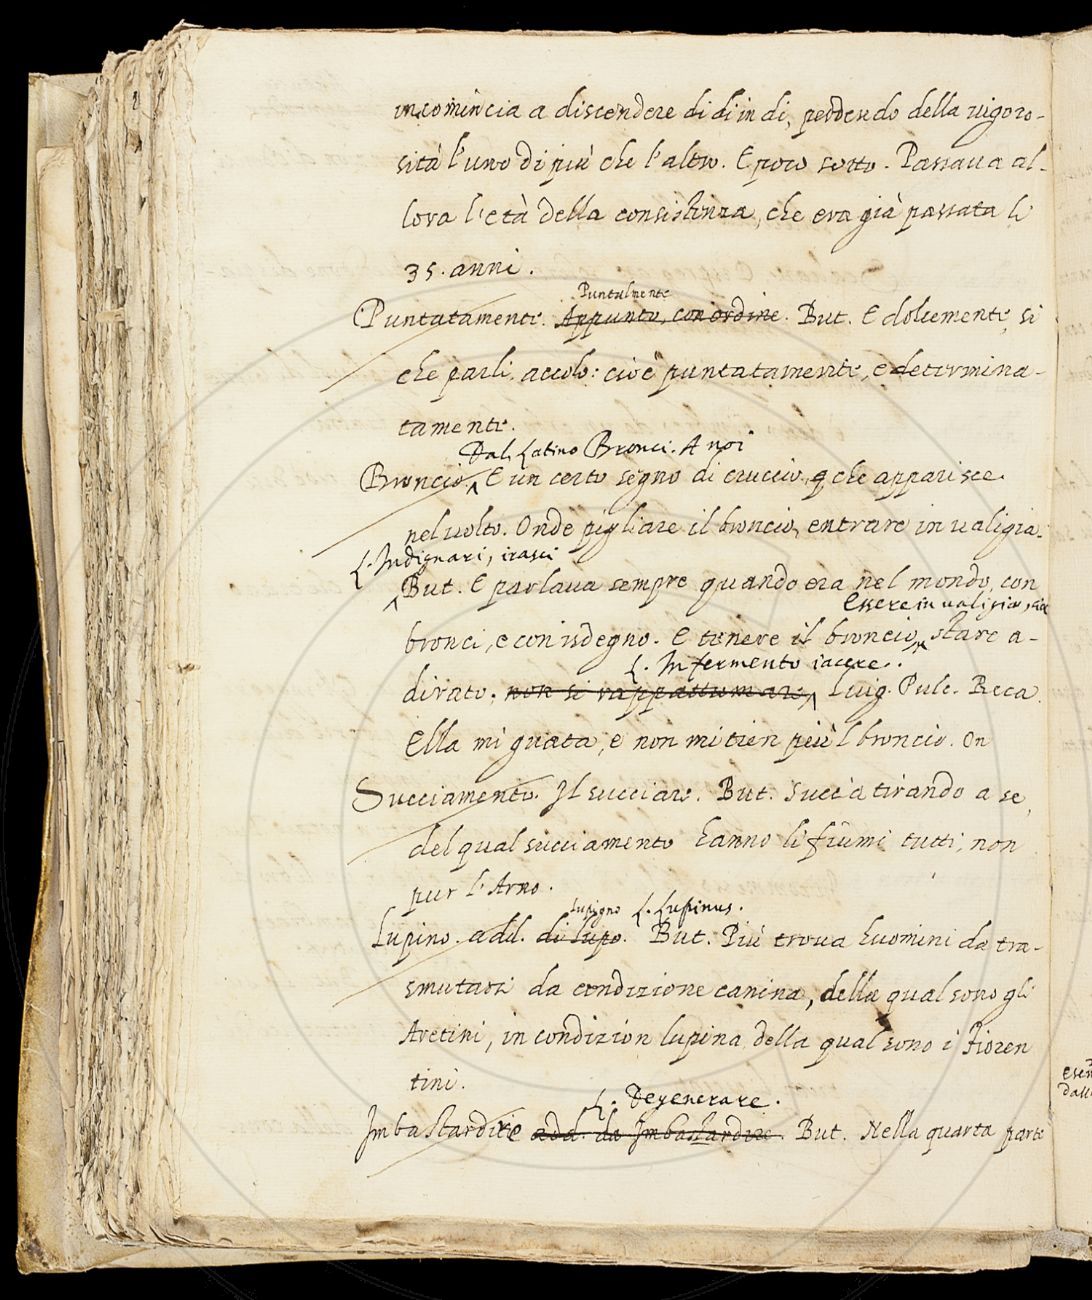 incomincia a discendere di di in di, perdendo della vigoro-
sità l'uno di più che l'altro. E poco sotto. Passava al-
lora l'età della consistenza, che era già passata li
35. anni.
Puntalmente
Puntatamente. Appunto, con ordine. But. E dolcemente, si
che parli. accolo: cioè puntatamente, e determina-
tamente.
Dal Latino Bronci. A noi
Broncio. E un certo segno di cruccio, che apparisce
nel volto. Onde pigliare il broncio, entrare in valigia.
L. Indignari, irasci
But. E parlava sempre quando era nel mondo, con
Essere in valigia,
bronci, e con isdegno. E tenere il broncio, stare a-
L. In fermento iacere.
dirato, non si rappattumare, Luig. Pulc. Beca
Ella mi guata, e non mi tien più 'l broncio. On
Succiamento. Il succiare. But. Succia tirando a se,
del qual succiamento hanno li fiumi tutti, non
pur l'Arno.
Lupigno L. Lupinus.
Lupino. add. di lupo. But. Più trova huomini da tra-
smutarsi da condizione canina, della qual sono gli
Aretini, in condizion lupina della qual sono i Fioren
tini.
L. Degenerare.
Imbastardire add. da Imbastardire. But. Nella quarta parte